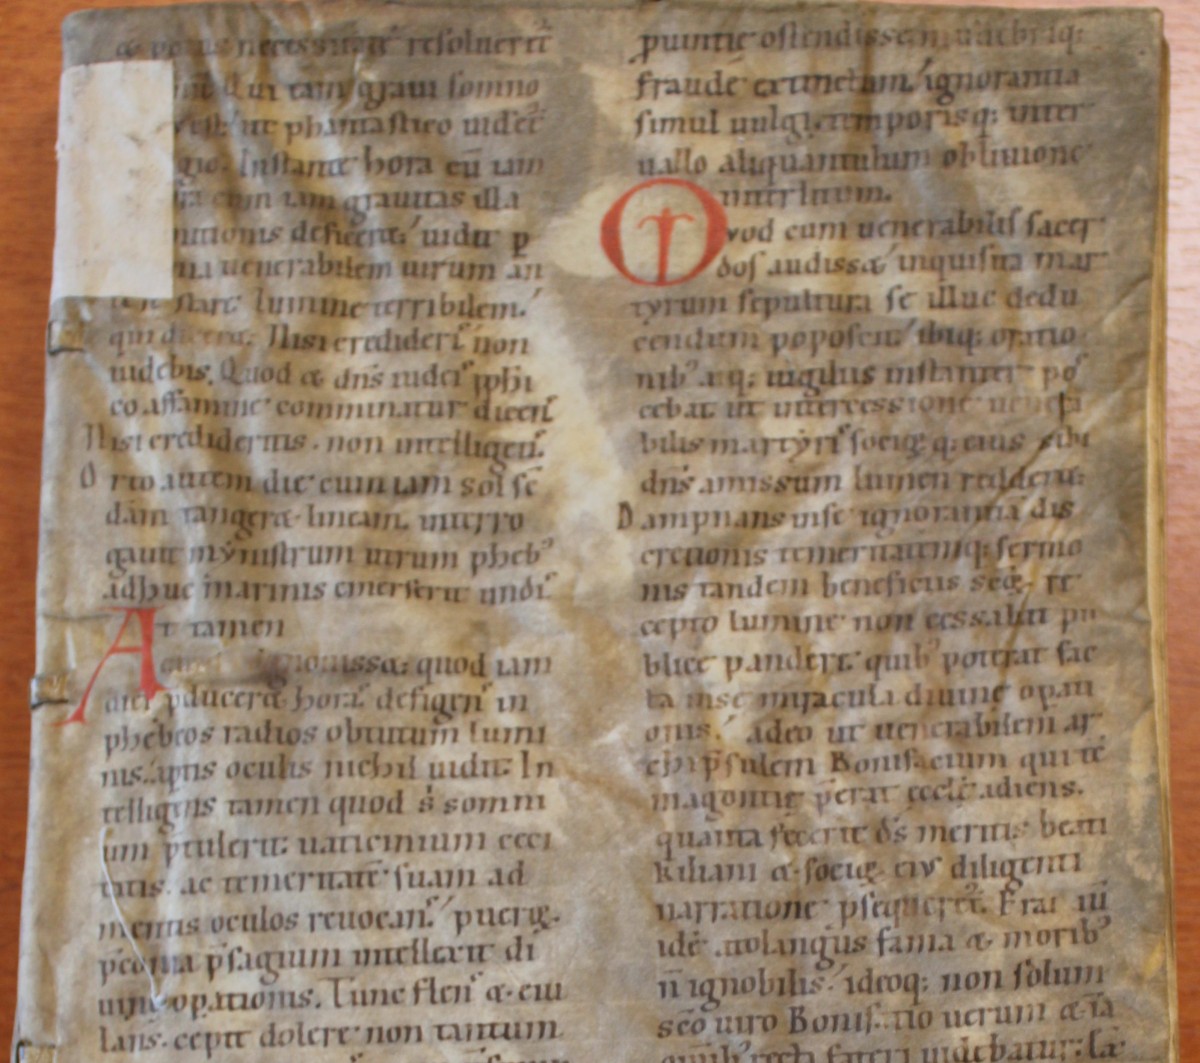 necessitate resolueret
Qui tam graui somno
ut phantastico uideret
Instante hora cū iam
cum iam grauitas illa
deficeret: uidit p
uenerabilem uirum an
stare lumine terribilem.
Nisi crediderı̄ non
uidebis. Quod & dn̄s iudeiſ
affamine comminatur dicenſ
Nisi credideritis. non intelligetiſ.
Orto autem die cum iam sol se
dam tangeret lineam. interro
gauit mynistrum utrum pheb᾽
adhuc in marinis emerserit undiſ
At tamen
quod iam
pducere& horaſ defigenſ in
phebeos radios obtutum lumi
nis. aptis oculis nichil uidit. In
telligens tamen quod s̄ somni
um ptulerit: uaticinium ceci
tatis. ac temeritatē suam ad
mentis oculos reuocanſ pueri
p̄sagium intellexit di
opationis. Tunc flenſ & eiu
lans. cepit dolere non tantum
ostendissem utrībiq:
fraudē extinctam ignorantia
simul uulgi. temporisq: inter
uallo aliquantulum obliuione
interlitum.
Quod cum uenerabilis sacer
dos audiss& inquisita mar
tyrum sepultura se illuc dedu
cendum poposcit ibiq: oratio
nib᾽ atq: uigiliis instanter poſ
cebat ut intercessione uenera
bilis martyriſ socięq: eius sibi
dn̄s amissum lumen redder&:
Dampnans in se ignorantiā dis
cretionis temeritatemq: sermo
nis tandem beneficiis re
cepto lumine non cessabit pu
blice pandere quib᾽ poterat fac
ta in se miracula diuine opati
onis. adeo ut uenerabilem ar
chip̄sulem Bonifacium qui tē
magontię p̄erat ecclē adiens.
quanta fecerit d̄s meritis beati
kiliani & eiſ diligenti
narratione psequer&. Erat iū
idē atolangus fama & morib᾽
n̄ ignobilis. ideoq: non solum
sc̄o uiro Bonifatio uerum & iā